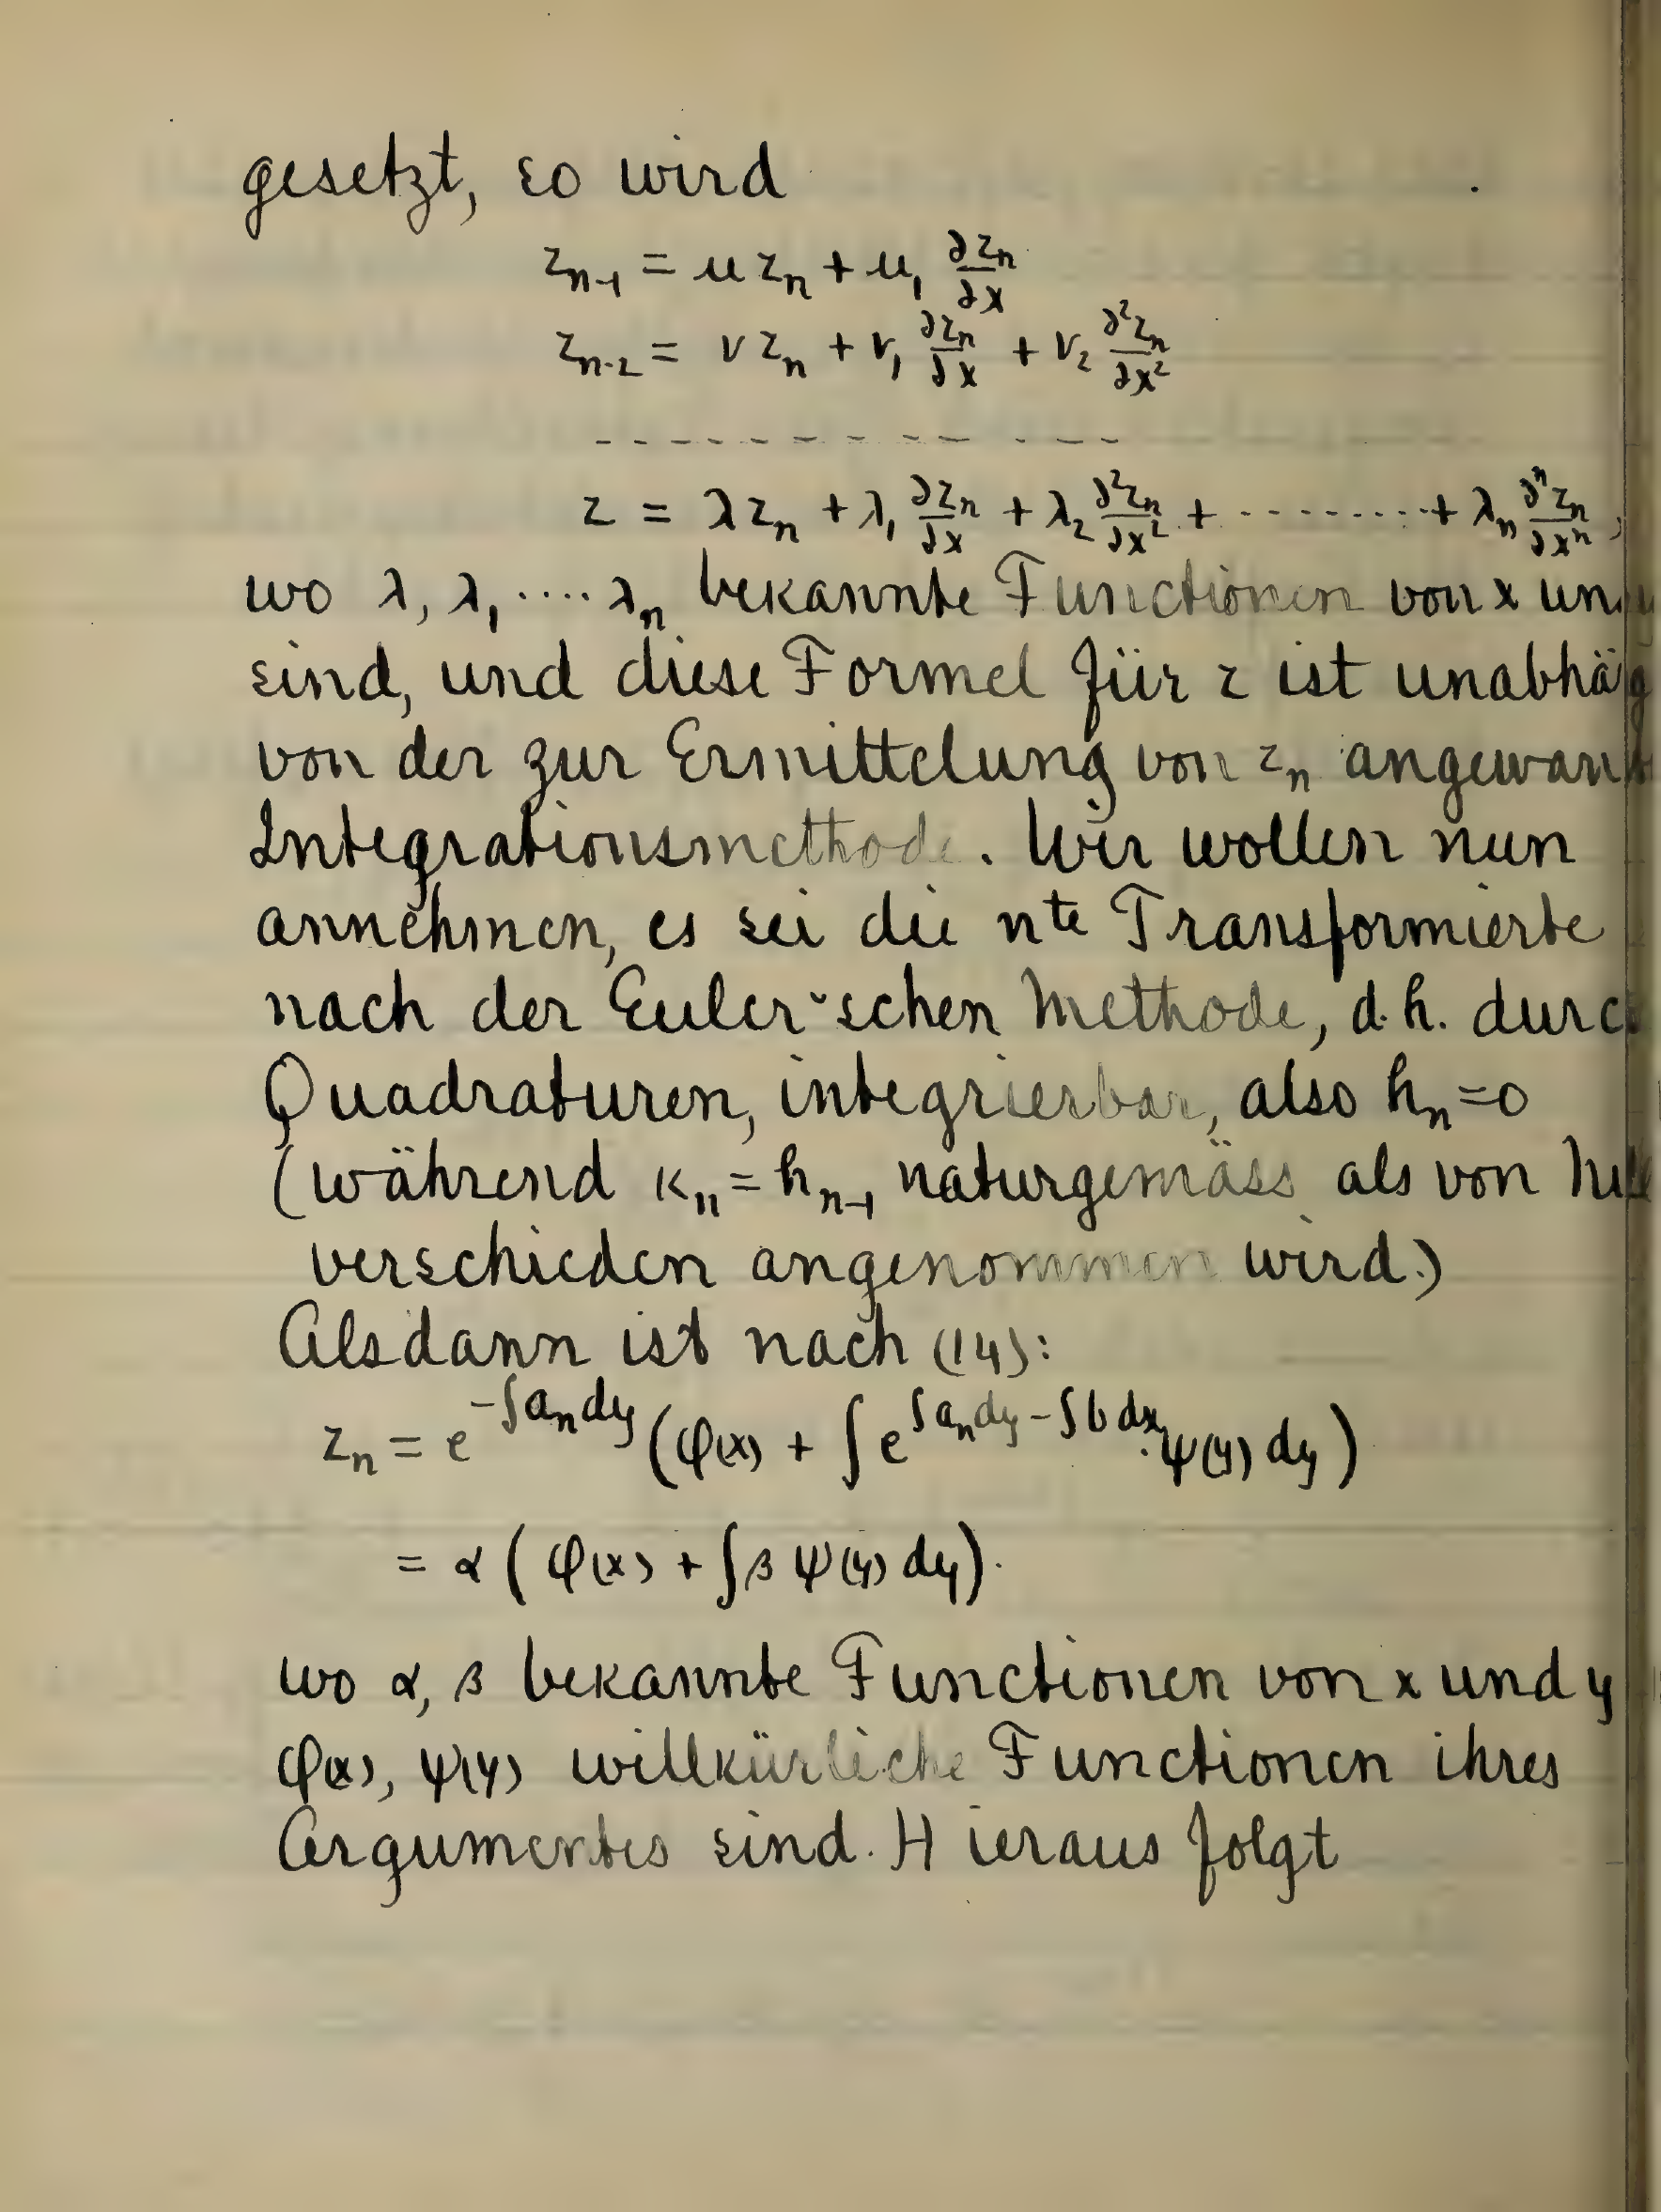 gesetzt, so wird
z_{n-1} = μ z_n + μ_1 ∂z_n/∂x
z_{n-2} = ν z_n + ν_1 ∂z_n/∂x + ν_2 ∂²z_n/∂x²
- - - - - - - - - - -
z = λ z_n + λ_1 ∂z_n/∂x + λ_2 ∂²z_n/∂x² + ········· + λ_n ∂ⁿz_n/∂xⁿ,
wo λ, λ_1 ···· λ_n bekannte Functionen von x un
sind, und diese Formel für z ist unabhäg
von der zur Ermittelung von z_n angewan
Integrationsmethode. Wir wollen nun
annehmen, es sei die nte Transformierte
nach der Euler'schen Methode, d.h. durc
Quadraturen, integrierbar, also h_n=0
(während κ_n = h_{n-1} naturgemäss als von
verschieden angenommen wird.)
Alsdann ist nach (14):
z_n = e^{-∫a_n dy} (φ(x) + ∫ e^{∫a_n dy - ∫b dx}·ψ(y) dy)
= α ( φ(x) + ∫β ψ(y) dy).
wo α, β bekannte Functionen von x und y
φ(x), ψ(y) willkürliche Functionen ihres
Argumentes sind. Hieraus folgt